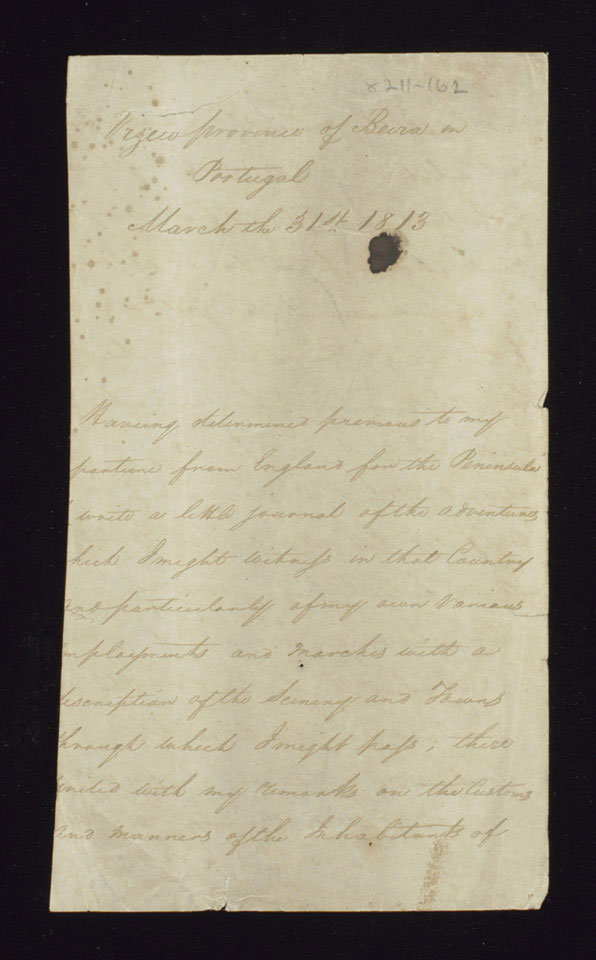 8211-162
Vizeu province of Beira in
Portugal
March the 31st 1813
Haveing determined previous to my
parture from England for the Peninsula
write a little journal of the adventures
hich I might witness in that Country
and particularly of my own Various
mployments and Marches with a
discription of the Scenery and Towns
through which I might pass; these
united with my remarks on the Customs
and manners of the Inhabitants of